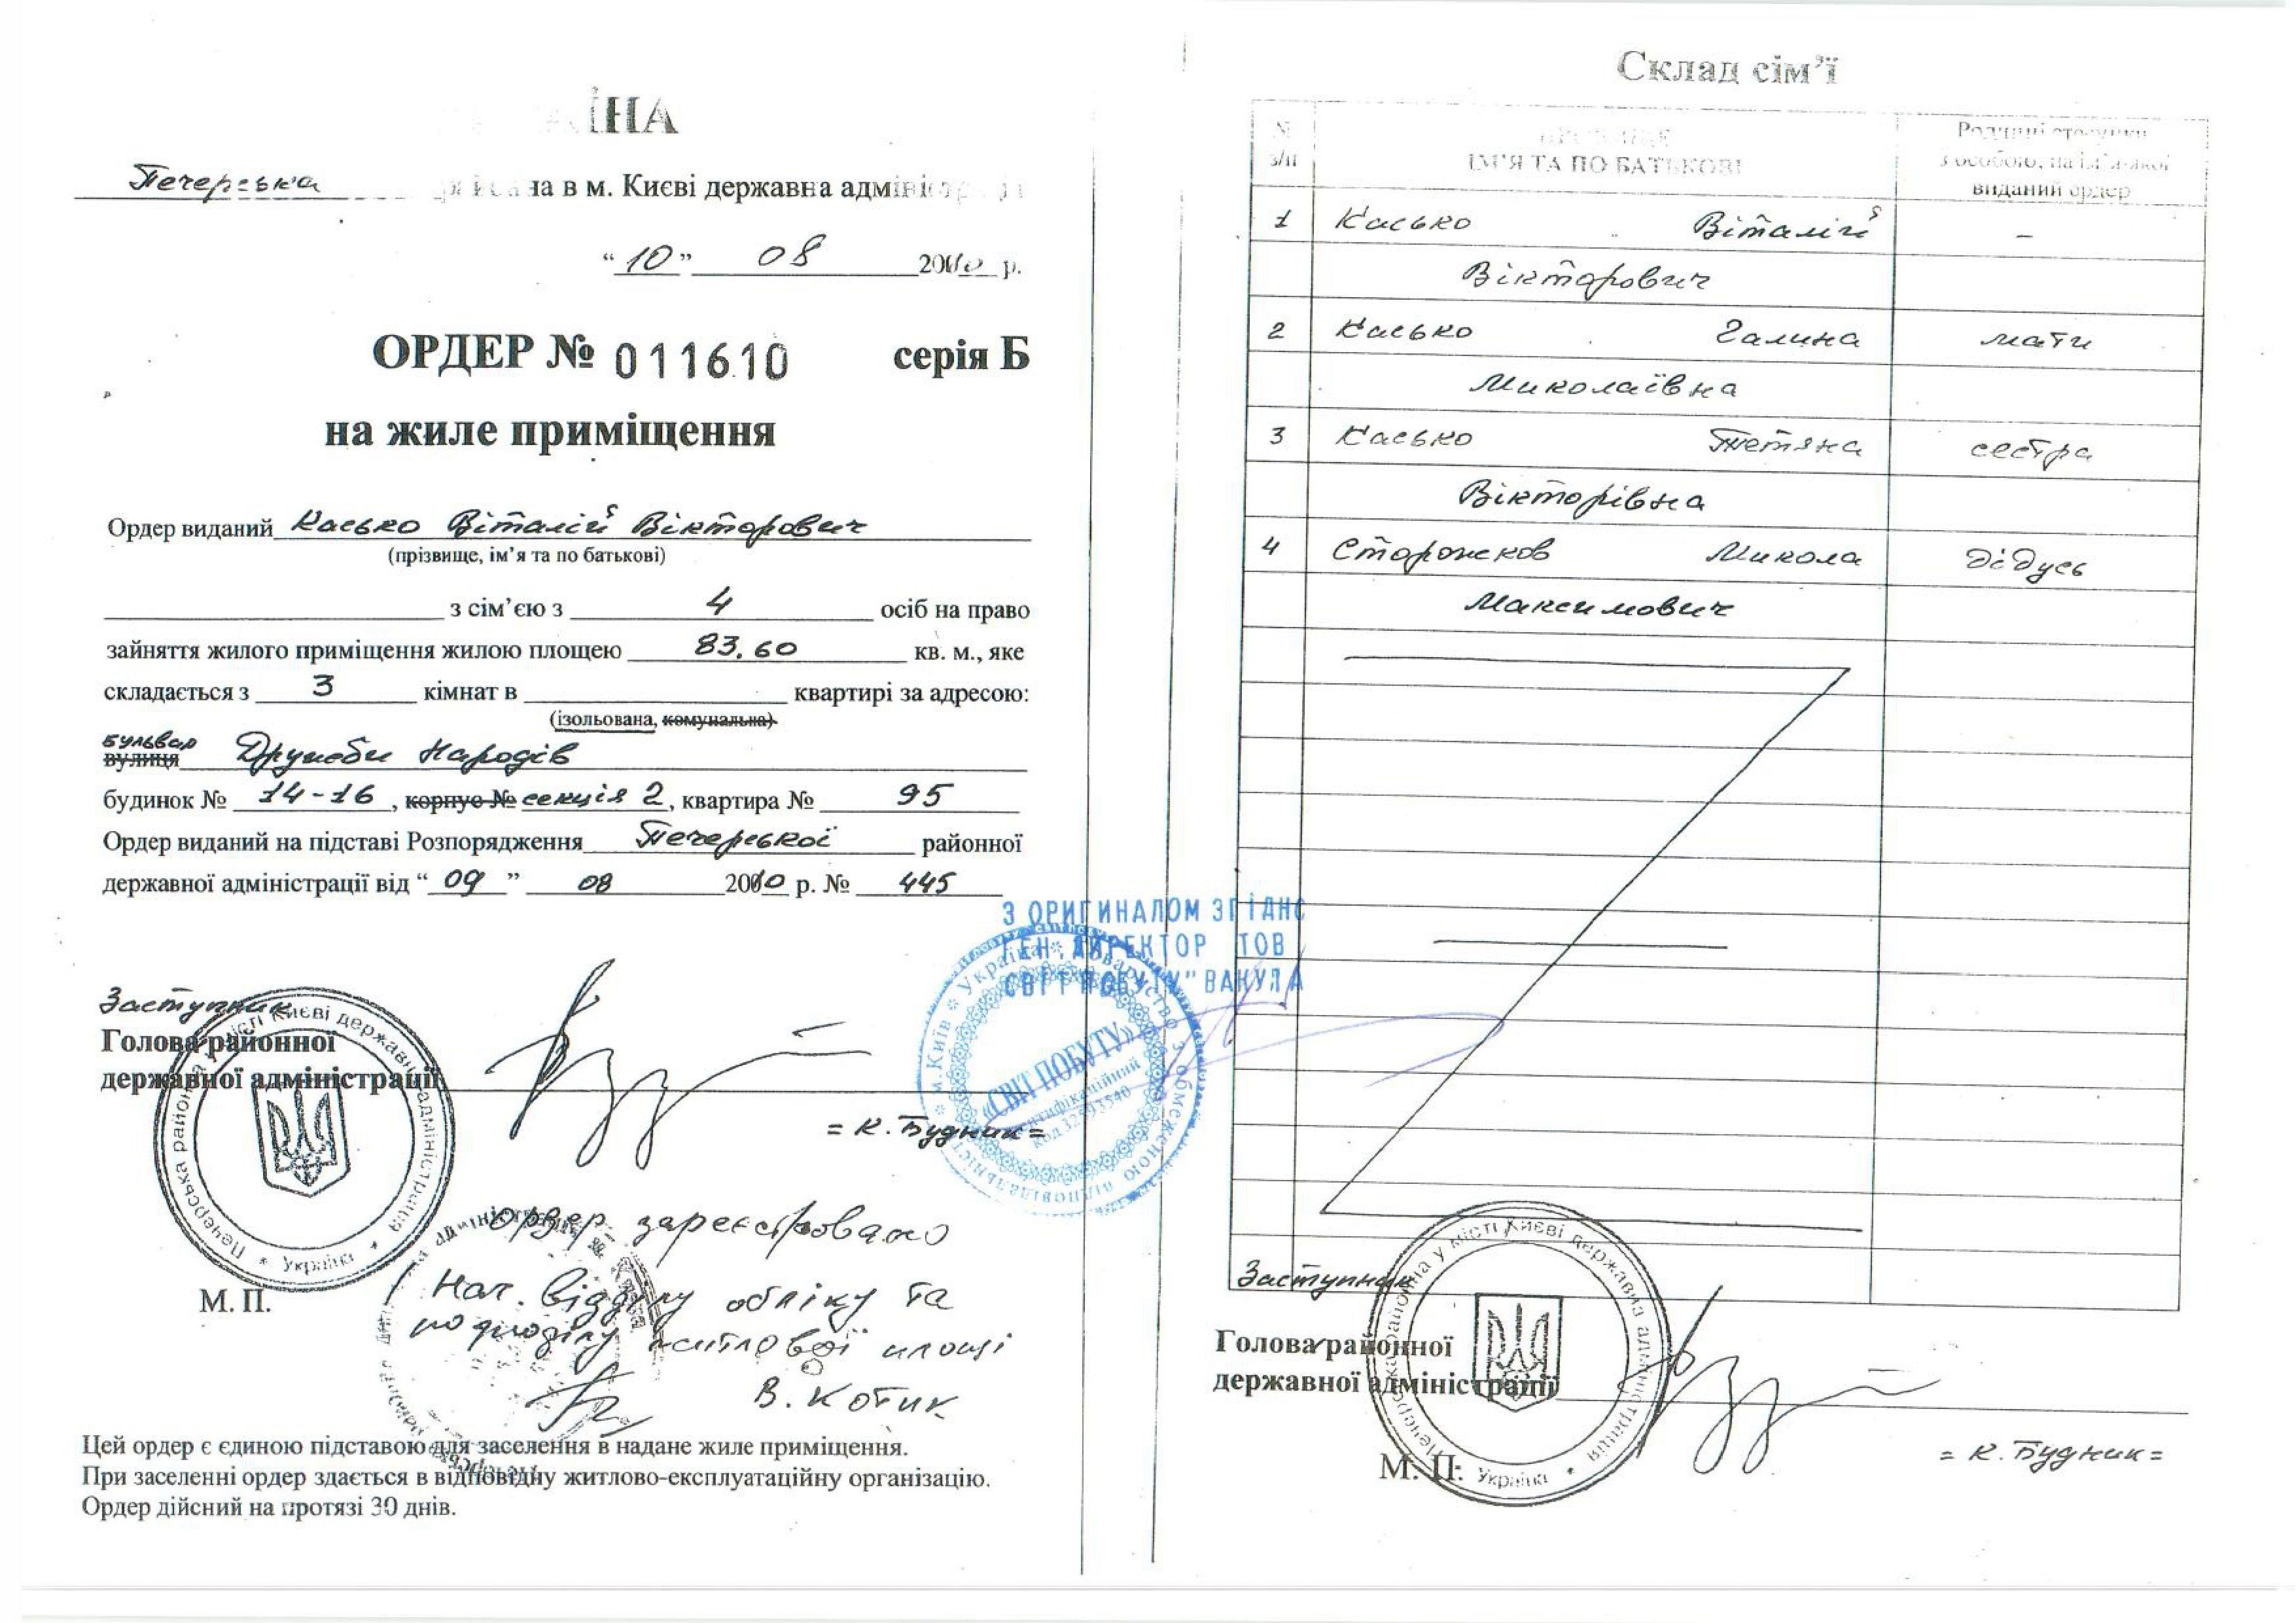 Печерська районна в м. Києві державна адміністрація
“10” 08 2010 р.
ОРДЕР № 011610 серія Б
на жиле приміщення
Ордер виданий Касько Віталій Вікторович
(прізвище, ім’я та по батькові)
з сім’єю з 4 осіб на право
зайняття жилого приміщення жилою площею 83.60 кв. м., яке
складається з 3 кімнат в квартирі за адресою:
(ізольована, комунальна)
бульвар
вулиця Дружби Народів
будинок № 14-16, корпус № секція 2, квартира № 95
Ордер виданий на підставі Розпорядження Печерської районної
державної адміністрації від “09” 08 2010 р. № 445
З ОРИГИНАЛОМ ЗГІДНО
ГЕН.ДИРЕКТОР ТОВ
СВІТ ПОБУТУ" ВАКУЛА
«СВІТ ПОБУТУ»
Заступник
Голова районної
державної адміністрації
= К. Будник =
Печерська районна у місті Києві державна адміністрація * Україна *
М. П.
Ордер зареєстровано
Нач. відділу обліку та
розподілу житлової площі
В. Котик
Цей ордер є єдиною підставою для заселення в надане жиле приміщення.
При заселенні ордер здається в відповідну житлово-експлуатаційну організацію.
Ордер дійсний на протязі 30 днів.
Склад сім’ї
№ з/п
ІМ’Я ТА ПО БАТЬКОВІ
Родинні стосунки
з особою, на ім’я якої
виданий ордер
1 Касько Віталій –
Вікторович
2 Касько Галина мати
Миколаївна
3 Касько Тетяна сестра
Вікторівна
4 Сторожков Микола дідусь
Максимович
Заступник
Голова районної
державної адміністрації
= К. Будник =
М. П.
Печерська районна у місті Києві державна адміністрація * Україна *